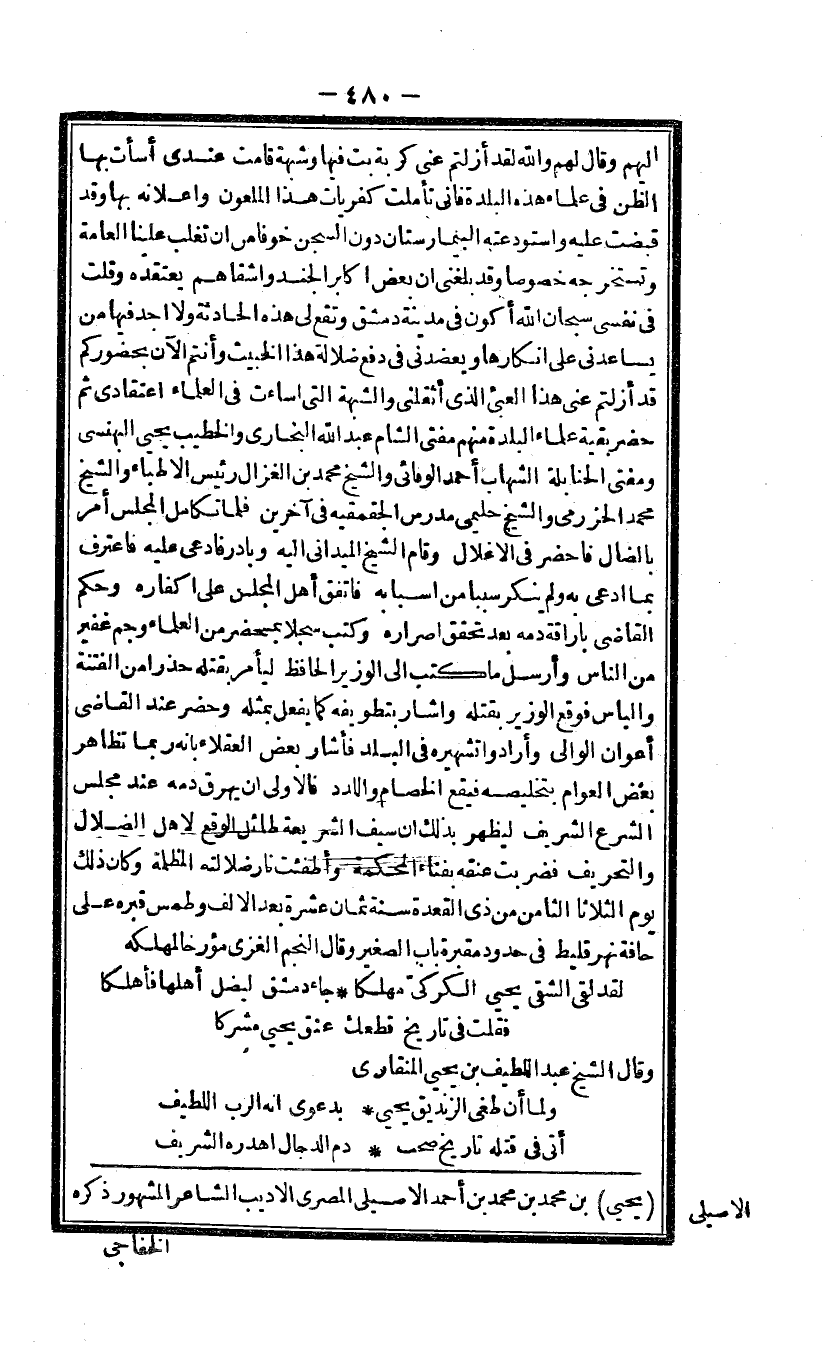 — ٤٨٠ —
اليهم وقال لهم والله لقد أزلتم عنى كربة بت فيها وشبهة قامت عندى أسأت بها
الظن فى علماء هذه البلدة فانى تأملت كفريات هذا الملعون واعلانه بها وقد
قبضت عليه واستودعته البيمارستان دون السجن خوفا من ان تغلب علينا العامة
وتستخرجه خصوصا وقد بلغنى ان بعض اكابر الجند واشقاهم يعتقده وقلت
فى نفسى سبحان الله أكون فى مدينة دمشق وتقع لى هذه الحادثة ولا اجد فيها من
يساعدنى على انكارها ويعضدنى فى دفع ضلالة هذا الخبيث وأنتم الآن بحضوركم
قد أزلتم عنى هذا العبئ الذى أثقلنى والشبهة التى اساءت فى العلماء اعتقادى ثم
حضر بقية علماء البلدة منهم مفتى الشام عبد الله البخارى والخطيب يحيى البهنسى
ومفتى الحنابلة الشهاب أحمد الوفائى والشيخ محمد بن الغزال رئيس الاطباء والشيخ
محمد الحزرمى والشيخ حليمى مدرس الجقمقيه فى آخرين فلما تكامل المجلس أمر
بالضال فاحضر فى الاغلال وقام الشيخ الميدانى اليه وبادر فادعى عليه فاعترف
بما ادعى به ولم ينكر سببا من اسبابه فاتفق أهل المجلس على اكفاره وحكم
القاضى باراقة دمه بعد تحقق اصراره وكتب سجلا بمحضر من العلماء وجم غفير
من الناس وأرسل ما كتب الى الوزير الحافظ ليأمر بقتله حذرا من الفتنة
والباس فوقع الوزير بقتله واشار بتطويفه كما يفعل بمثله وحضر عند القاضى
أعوان الوالى وأرادوا تشهيره فى البلد فأشار بعض العقلاء بانه ربما تظاهر
بعض العوام بتخليصه فيقع الخصام واللدد فالاولى ان يهرق دمه عند مجلس
الشرع الشريف ليظهر بذلك ان سيف الشريعة طائل الوقع لاهل الضلال
والتحريف فضربت عنقه بفناء المحكمة وأطفئت نار ضلالته المظلمة وكان ذلك
يوم الثلاثا الثامن من ذى القعدة سنة ثمان عشرة بعد الالف وطمس قبره على
حافة نهر قليط فى حدود مقبرة باب الصغير وقال النجم الغزى مؤرخا لمهلكه
لقد لقى الشقى يحيى الكركىّ مهلكا * جاء دمشق ليضل أهلها فأهلكا
فقلت فى تاريخ قطعك عنق يحيى مشركا
وقال الشيخ عبد اللطيف بن يحيى المنقارى
ولما أن طغى الزنديق يحيى * بدعوى انه الرب اللطيف
أتى فى قتله تاريخ صحب * دم الدجال اهدره الشريف
(يحيى) بن محمد بن محمد بن أحمد الاصيلى المصرى الاديب الشاعر المشهور ذكره
الاصيلى
الخفاجى